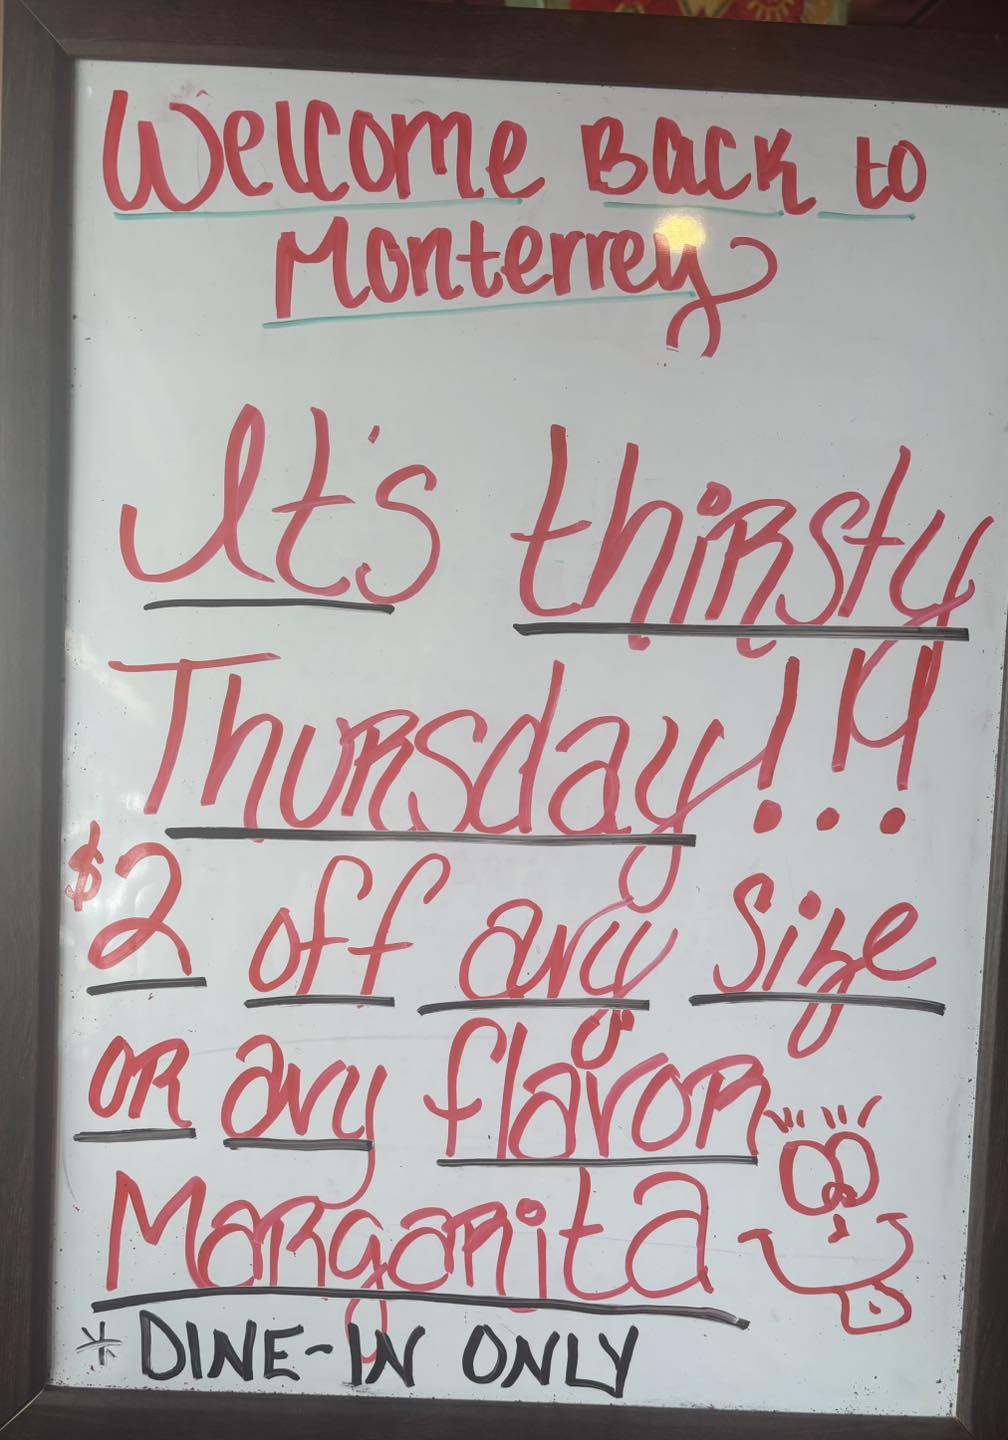 Welcome Back to
Monterrey
It's thirsty
Thursday!!!
$2 off any size
or any flavor
Margarita
* DINE-IN ONLY